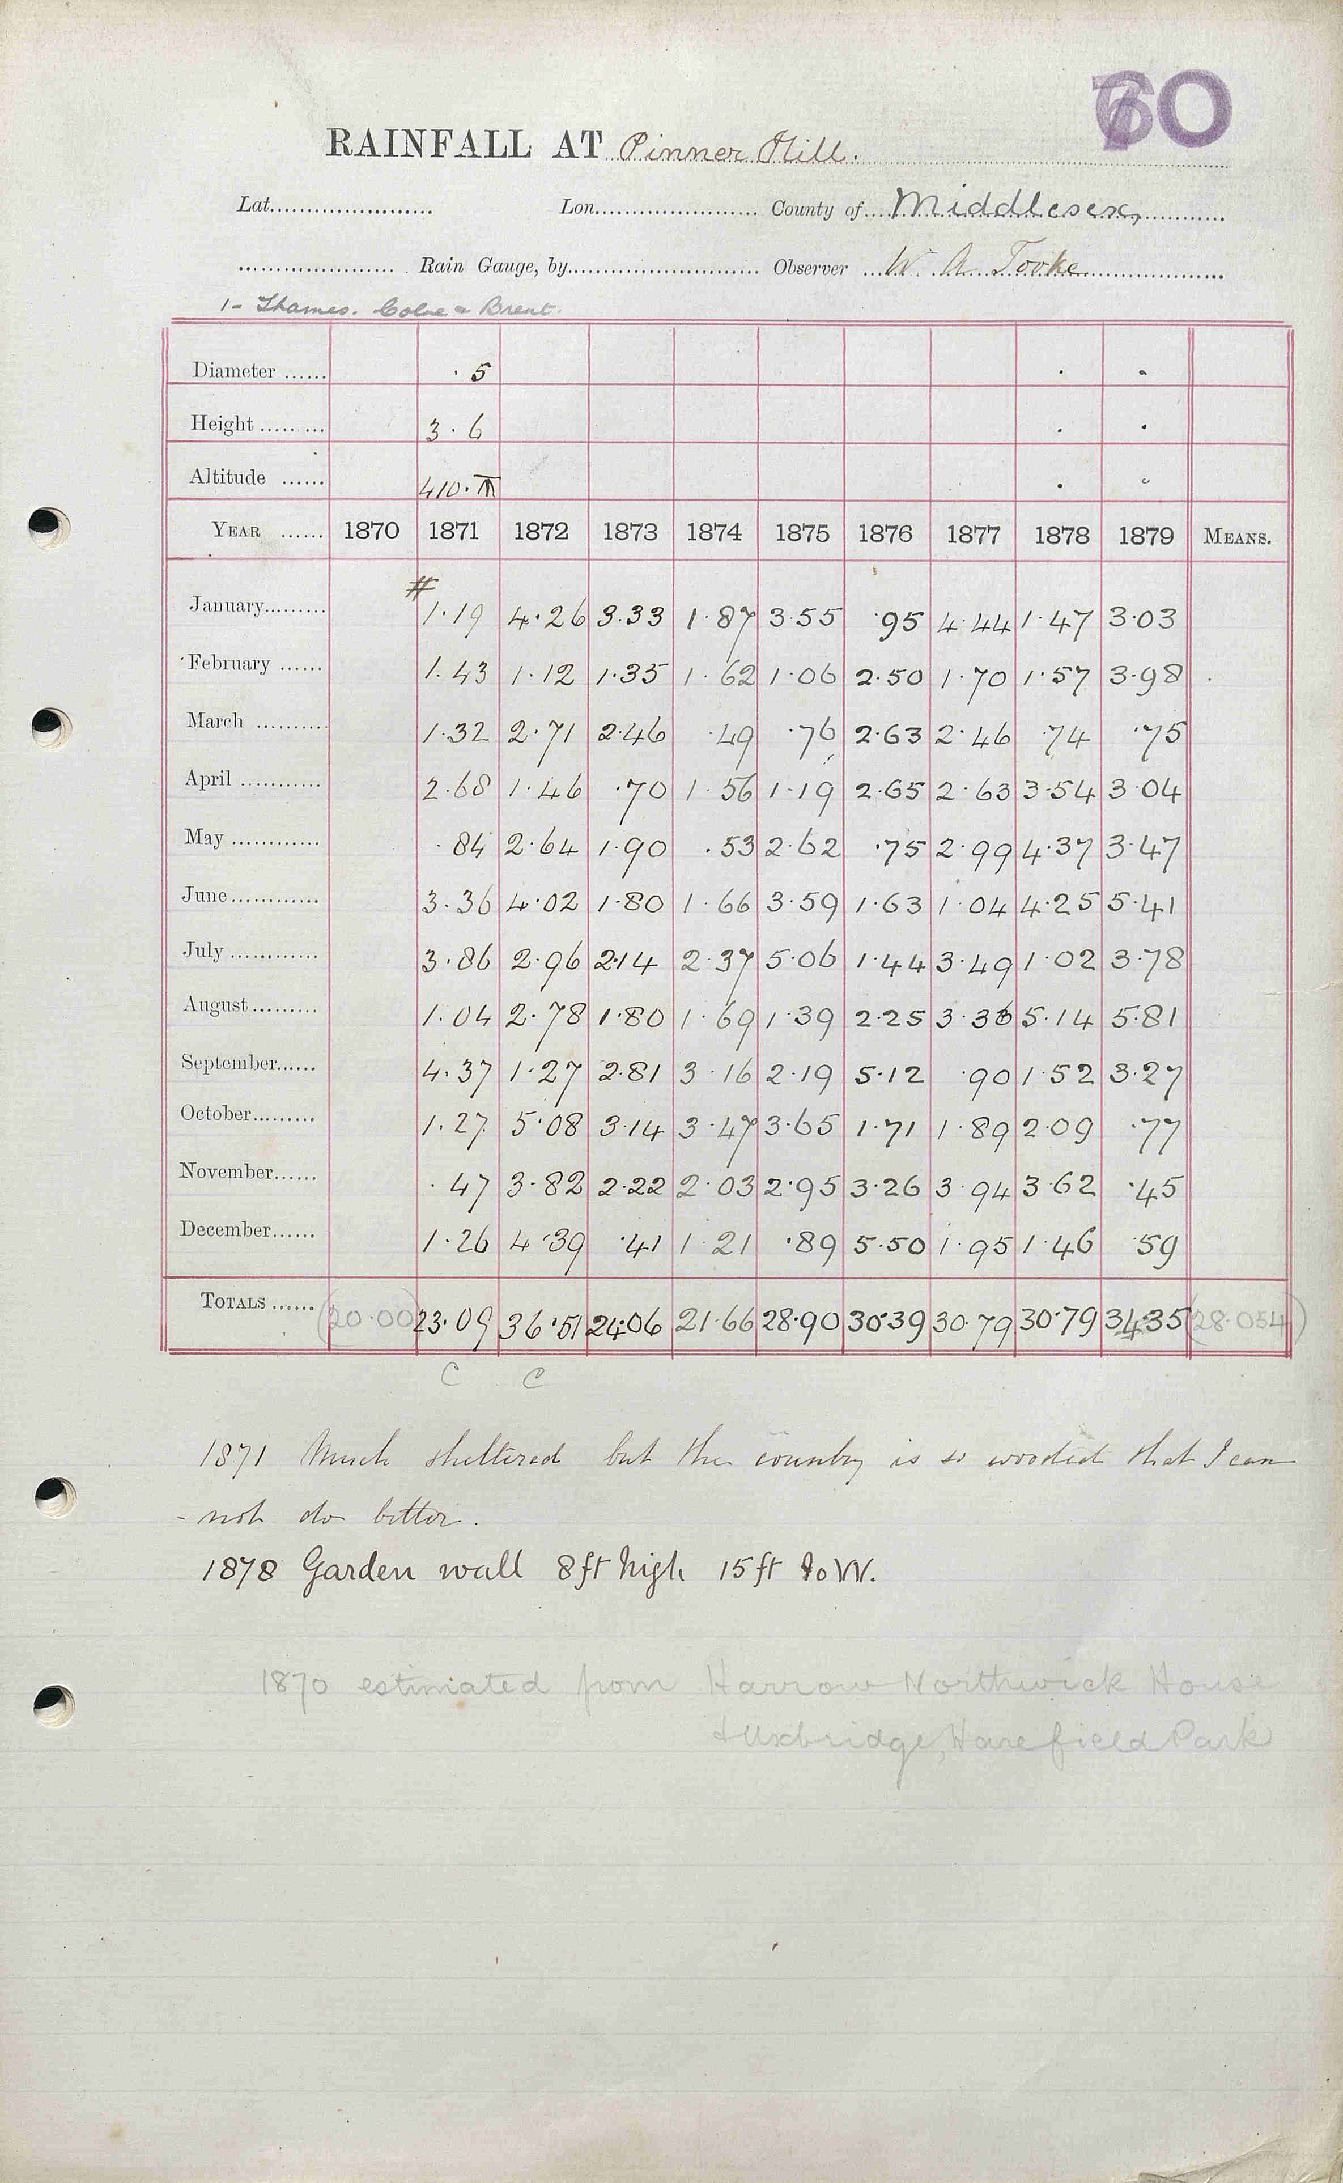 60
RAINFALL AT Pinner Hill.
Lat...................... Lon...................... County of....Middlesex,............
..................... Rain Gauge, by.......................... Observer ...W. A. Tooke....................
1- Thames. Colne & Brent.
Diameter ...... · 5 · ·
Height ........ 3 · 6 · ·
Altitude ...... 410· · ·
YEAR ...... 1870 1871 1872 1873 1874 1875 1876 1877 1878 1879 MEANS.
#
January......... 1·19 4·26 3·33 1·87 3·55 ·95 4·44 1·47 3·03
February ...... 1·43 1·12 1·35 1·62 1·06 2·50 1·70 1·57 3·98
March .......... 1·32 2·71 2·46 ·49 ·76 2·63 2·46 ·74 ·75
April ........... 2·68 1·46 ·70 1·56 1·19 2·65 2·63 3·54 3·04
May ............ ·84 2·64 1·90 ·53 2·62 ·75 2·99 4·37 3·47
June............ 3·36 4·02 1·80 1·66 3·59 1·63 1·04 4·25 5·41
July ............ 3·86 2·96 2·14 2·37 5·06 1·44 3·49 1·02 3·78
August......... 1·04 2·78 1·80 1·69 1·39 2·25 3·36 5·14 5·81
September...... 4·37 1·27 2·81 3·16 2·19 5·12 ·90 1·52 3·27
October......... 1·27 5·08 3·14 3·47 3·65 1·71 1·89 2·09 ·77
November...... ·47 3·82 2·22 2·03 2·95 3·26 3·94 3·62 ·45
December...... 1·26 4·39 ·41 1·21 ·89 5·50 1·95 1·46 ·59
TOTALS ...... (20·00) 23·09 36·51 24·06 21·66 28·90 30·39 30·79 30·79 34·35 (28·054)
C C
1871 Much sheltered but the country is so wooded that I can
- not do better.
1878 Garden wall 8ft high 15ft to W.
1870 estimated from Harrow Northwick House
& Uxbridge, Harefield Park